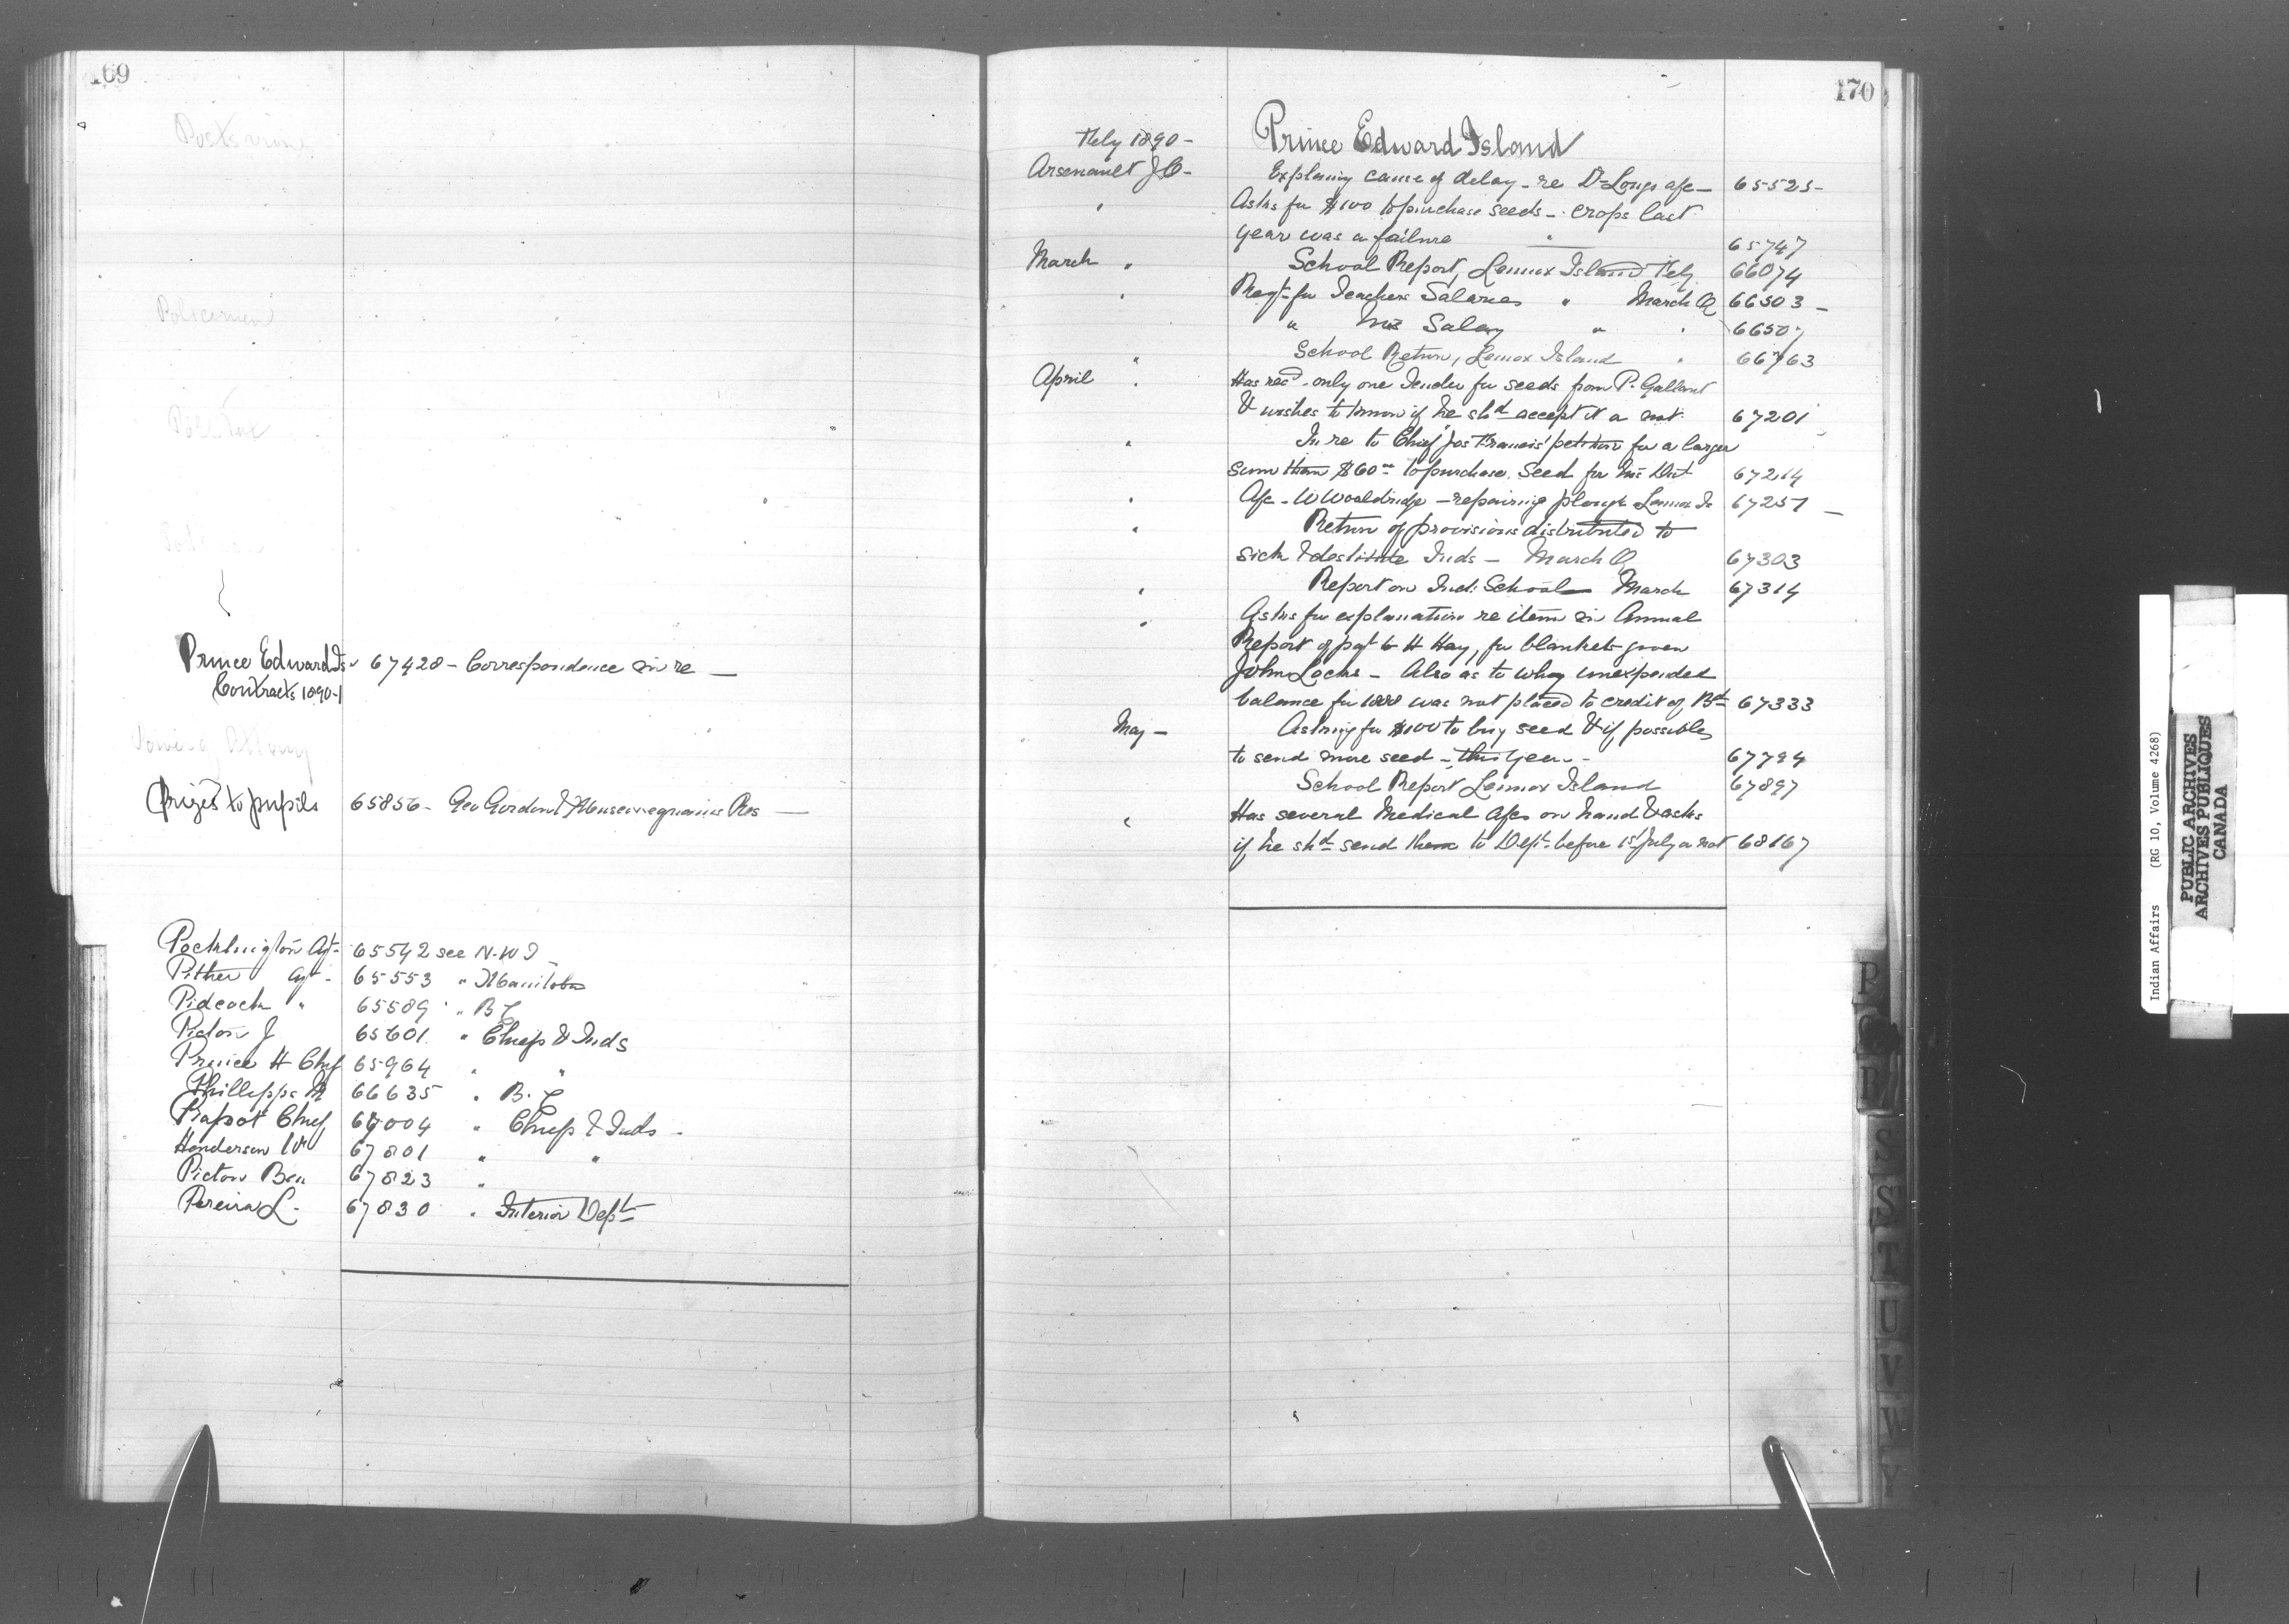 169
Policemen
Prince Edward Is 67428 - Correspondence in re -
Contracts 1890-1
Prizes to pupils 65856 - Geo Gordon's Res -
Agt - 65542 see N.W.T
Pither Agt - 65553 " Manitoba
Pidcock " 65589 " B C
Picton J 65601 " Chiefs & Inds
Prince H Chief 65964 " "
Phillipps M 66635 " B.C
Chief 67004 " Chiefs & Inds -
Henderson Wm 67801 " "
Picton Ben 67823 "
Pereira L. 67830 " Interior Dept
170
Feby 1890 - Prince Edward Island
Arsenault J.O - Explaing cause of delay - re Dr Longs a/c - 65525 -
" Asks for $100 to purchase seeds - crops last
year was a failure " 65747
March " School Report, Lennox Island Feby 66074
" Reqt for Teachers Salaries " March Q 66503 -
" his Salary " " 66507
" School Return, Lennox Island " 66763
April " Has recd only one Tender for seeds from P. Gallant
& wishes to know if he shd accept it or not 67201
" In re to Chief Jos Francis' petition for a larger
sum than $60 to purchase Seed for his Dist 67214
" A/c - W Wooldridge - repairing plough Lennox Is 67257 -
" Return of provisions distributed to
sick & destitute Inds - March Q 67303
" Report on Ind. School - March 67314
" Asks for explanation re item in Annual
Report of pat to H Hay, for blankets given
John Locke - Also as to why unexpended
balance for 1888 was not placed to credit of Bd 67333
May - Asking for $100 to buy seed & if possible
to send more seed - this year - 67794
School Report Lennox Island 67897
" Has several Medical a/cs on hand & asks
if he shd send them to Dept. before 1st July or not 68167
P
R
S
S
T
U
V
W
Y
Indian Affairs (RG 10, Volume 4268)
PUBLIC ARCHIVES
ARCHIVES PUBLIQUES
CANADA